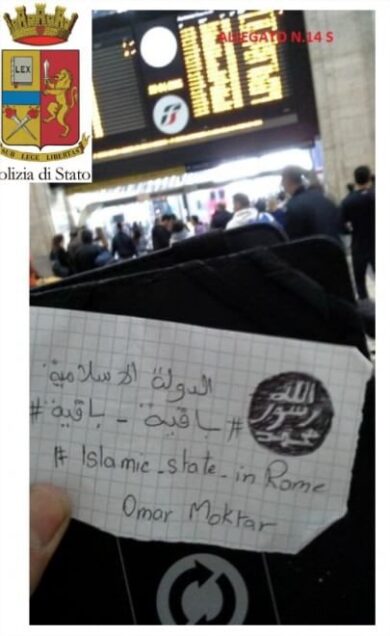 ALLEGATO N.14 S
LEX
SUB LEGE LIBERTAS
Polizia di Stato
الدولة الاسلامية
#باقية - باقية#
الله
رسول
محمد
# Islamic_state_in Rome
Omar Moktar